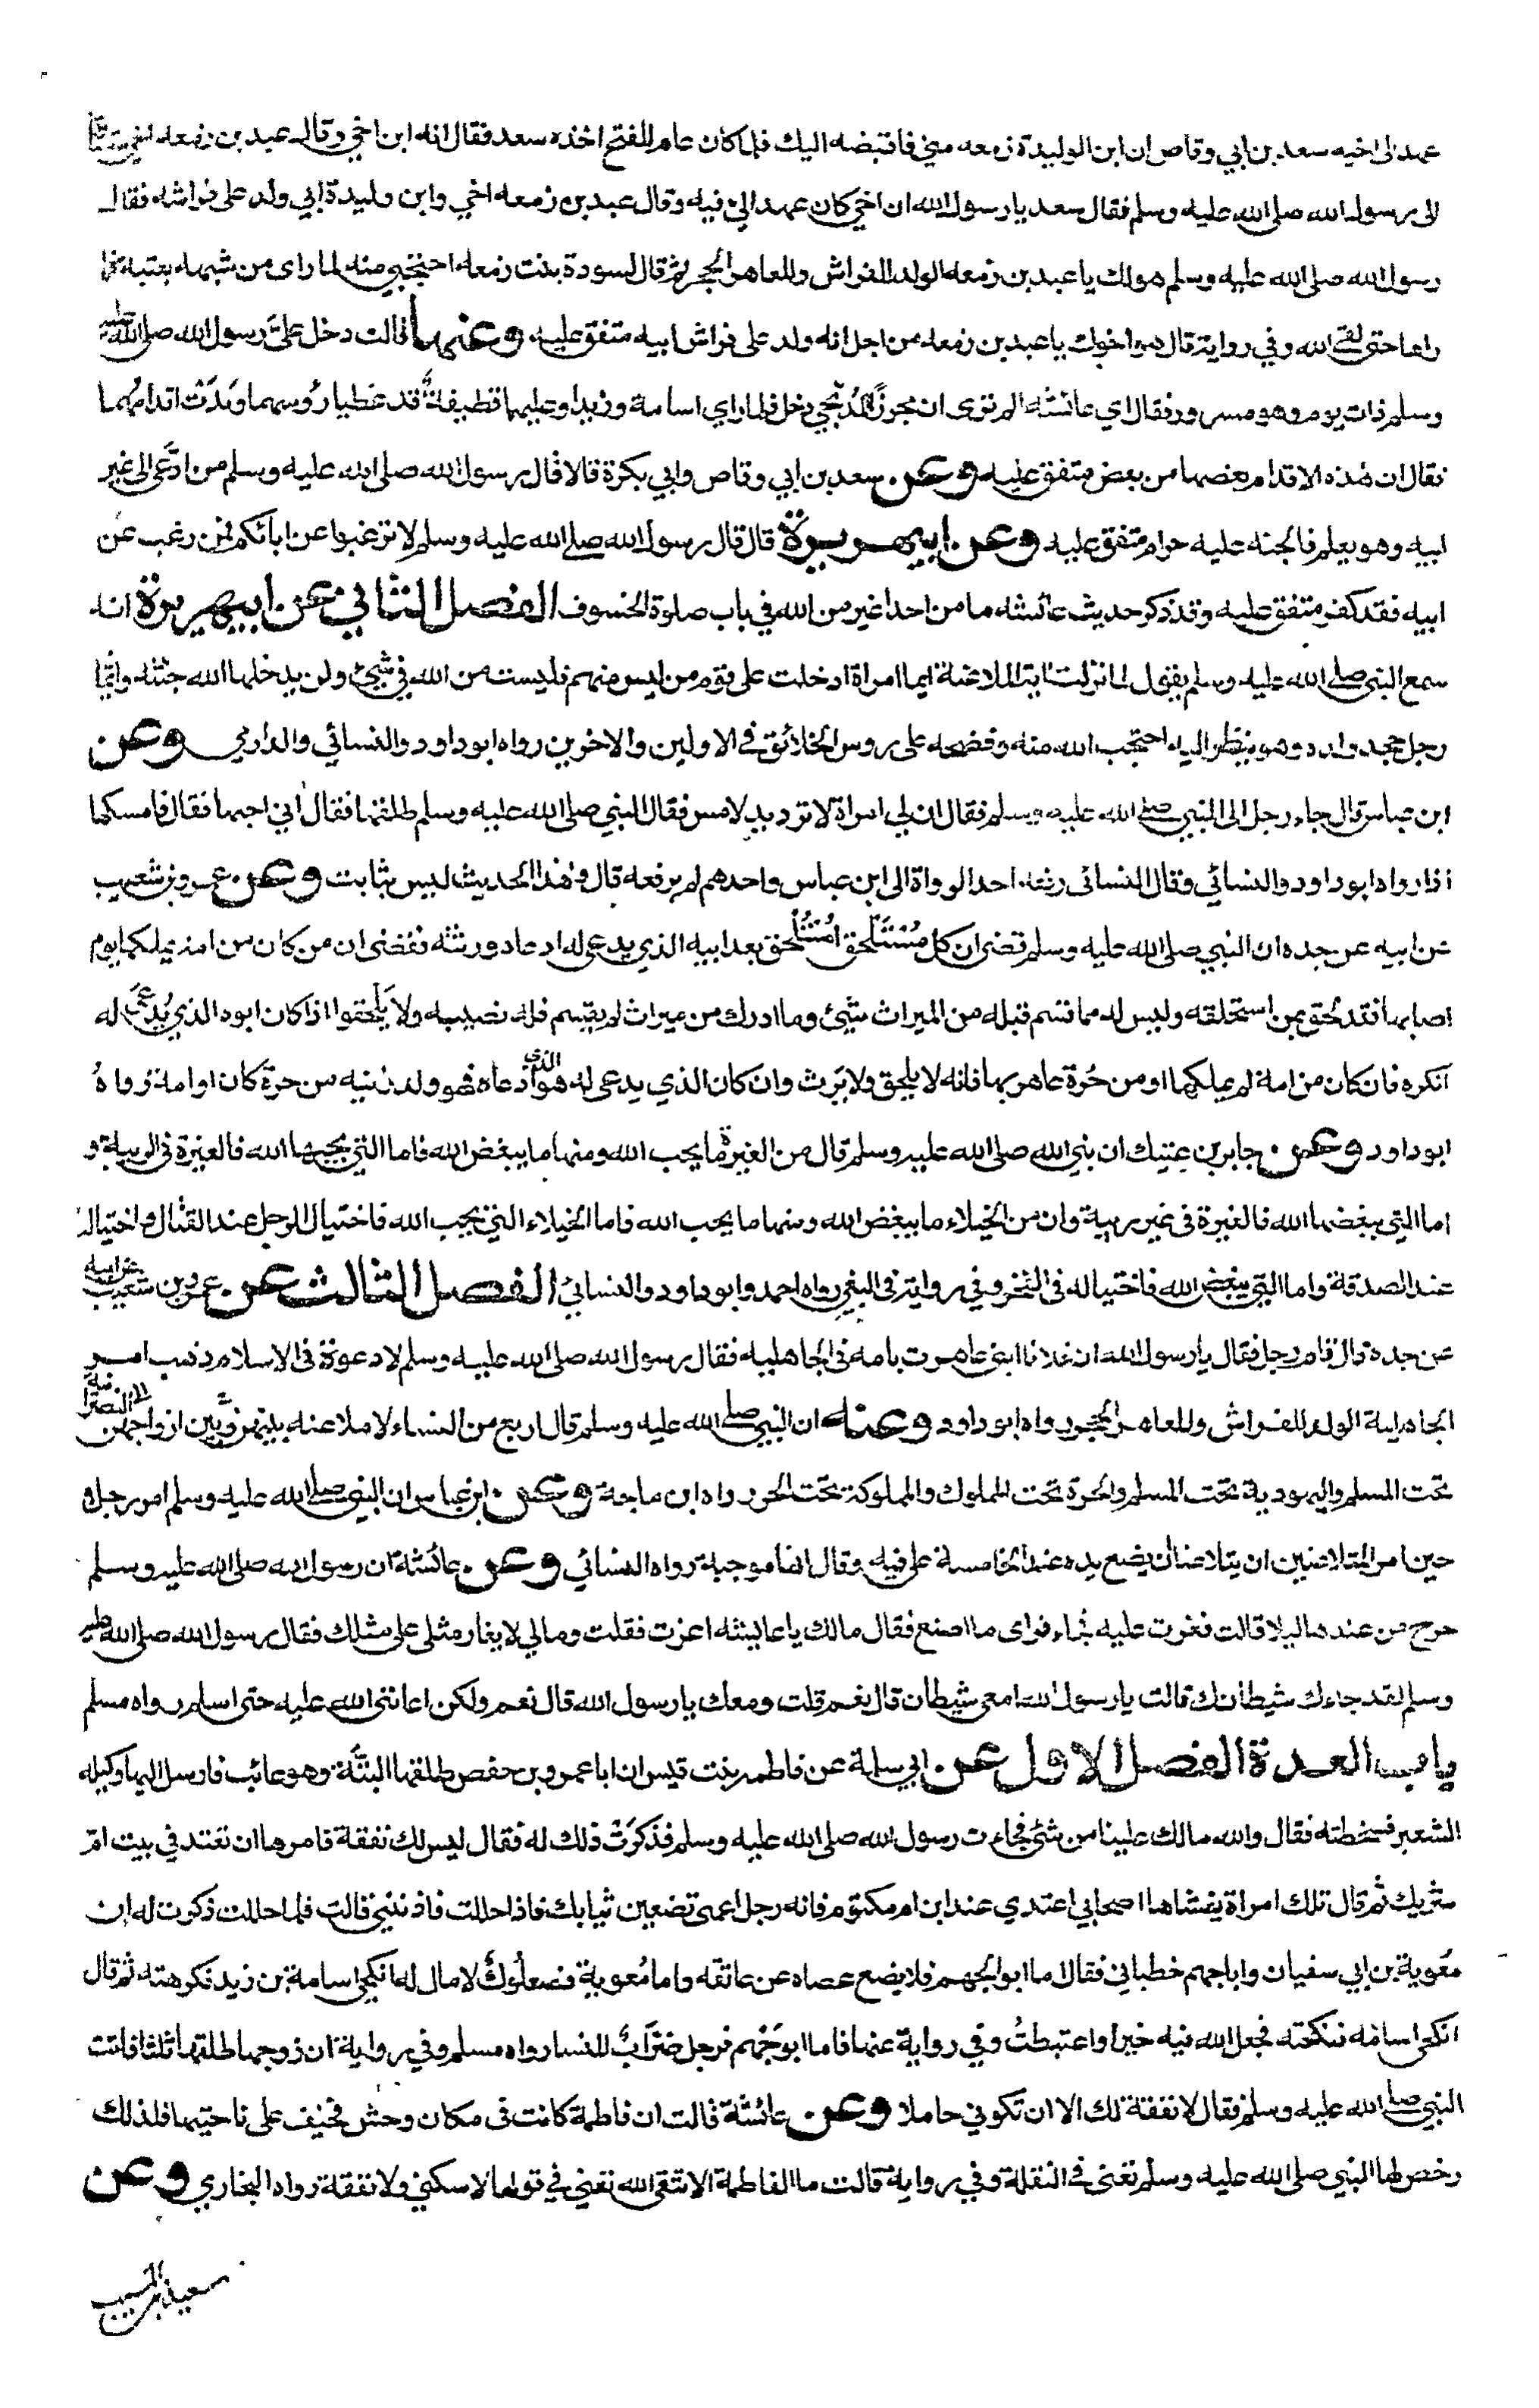 عهد الى اخيه سعد بن ابي وقاص ان ابن الوليدة زمعه مني فاقبضه اليك فلما كان عام الفتح اخذه سعد فقال انه ابن اخي وقال عبد بن زمعه اخي
الى رسول الله صلى الله عليه وسلم فقال سعد يا رسول الله ان اخي كان عهد الي فيه وقال عبد بن زمعه اخي وابن وليدة ابي ولد على فراشه فقال
رسول الله صلى الله عليه وسلم هو لك يا عبد بن زمعه الولد للفراش وللعاهر الحجر ثم قال لسودة بنت زمعه احتجبي منه لما راى من شبهه بعتبة فما
راها حتى لقي الله وفي رواية قال هو اخوك يا عبد بن زمعه من اجل انه ولد على فراش ابيه متفق عليه وعنها قالت دخل عليَّ رسول الله صلى الله عليه
وسلم ذات يوم وهو مسرور فقال اي عائشه الم تري ان مجززًا المدلجي دخل فلما راي اسامة وزيدا وعليهما قطيفة قد غطيا رؤسهما وبَدَت اقدامُهما
فقال ان هذه الاقدام بعضها من بعض متفق عليه وعن سعد بن ابي وقاص وابي بكرة قالا قال رسول الله صلى الله عليه وسلم من ادَّعى الى غير
ابيه وهو يعلم فالجنه عليه حرام متفق عليه وعن ابيهريرة قال قال رسول الله صلى الله عليه وسلم لا ترغبوا عن ابائكم فمن رغب عن
ابيه فقد كفر متفق عليه وقد ذكر حديث عائشه ما من احد اغير من الله في باب صلوة الخسوف الفصل الثاني عن ابيهريرة انه
سمع النبي صلى الله عليه وسلم يقول لما نزلت اية الملاعنة ايما امراة ادخلت على قوم من ليس منهم فليست من الله في شيئ ولن يدخلها الله جنته وايما
رجل جحد ولده وهو ينظر اليه احتجب الله منه وفضحه على رؤس الخلائق في الاولين والاخرين رواه ابوداود والنسائي والدارمي وعن
ابن عباس قال جاء رجل الى النبي صلى الله عليه وسلم فقال ان لي امراة لا ترد يد لامس فقال النبي صلى الله عليه وسلم طلقها فقال اني احبها فقال فامسكها
اذا رواه ابوداود والنسائي وقال النسائى رفعه احد الرواة الى ابن عباس واحدهم لم يرفعه قال وهذا الحديث ليس بثابت وعن عمرو بن شعيب
عن ابيه عن جده ان النبي صلى الله عليه وسلم قضى ان كل مُستَلحَق استُلحق بعد ابيه الذي يدعى له ادعاه ورثته فقضى ان من كان من امة يملكها يوم
اصابها فقد لحق بمن استلحقه وليس له مما قسم قبله من الميراث شيئ وما ادرك من ميراث لم يقسم فله نصيبه ولا يَلحقوا اذا كان ابوه الذي يُدعَى له
انكره فان كان من امة لم يملكها او من حُرة عاهر بها فانه لا يلحق ولا يرث وان كان الذي يدعى له هو الذي ادعاه فهو ولد زنيه من حرة كان او امة رواهُ
ابوداود وعن جابر بن عتيك ان نبي الله صلى الله عليه وسلم قال من الغيرة ما يحب الله ومنها ما يبغض الله فاما التي يحبها الله فالغيرة في الريبة و
اما التي يبغضها الله فالغيرة في غير ريبة وان من الخيلاء ما يبغض الله ومنها ما يحب الله فاما الخيلاء التي يحب الله فاختيال الرجل عند القتال واختياله
عند الصدقة واما التي يبغض الله فاختياله في الفخر وفي رواية في البغي رواه احمد وابوداود والنسائي الفصل الثالث عن عمرو بن شعيب عن ابيه
عن جده قال قام رجل فقال يا رسول الله ان فلانا ابني عاهرت بامه في الجاهلية فقال رسول الله صلى الله عليه وسلم لا دعوة في الاسلام ذهب امر
الجاهلية الولد للفراش وللعاهر الحجر رواه ابوداود وعنه ان النبي صلى الله عليه وسلم قال اربع من النساء لا ملاعنة بينهن وبين ازواجهن النصرانية
تحت المسلم واليهودية تحت المسلم والحرة تحت المملوك والمملوكة تحت الحر رواه ابن ماجة وعن ابن عباس ان النبي صلى الله عليه وسلم امر رجلا
حين امر المتلاعنين ان يتلاعنا ان يضع يده عند الخامسة على فيه وقال انها موجبة رواه النسائي وعن عائشة ان رسول الله صلى الله عليه وسلم
خرج من عندها ليلا قالت فغرت عليه فجاء فراى ما اصنع فقال مالك يا عائشه اغرت فقلت ومالي لا يغار مثلي على مثلك فقال رسول الله صلى الله عليه
وسلم لقد جاءك شيطانك قالت يا رسول الله امعي شيطان قال نعم قلت ومعك يا رسول الله قال نعم ولكن اعانني الله عليه حتى اسلم رواه مسلم
باب العدة الفصل الاول عن ابي سلمة عن فاطمه بنت قيس ان ابا عمرو بن حفص طلقها البتَّة وهو غائب فارسل اليها وكيله
الشعير فسخطته فقال والله مالك علينا من شئ فجاءت رسول الله صلى الله عليه وسلم فذكرَت ذلك له فقال ليس لك نفقة فامرها ان تعتد في بيت امّ
شريك ثم قال تلك امراة يغشاها اصحابي اعتدي عند ابن ام مكتوم فانه رجل اعمى تضعين ثيابك فاذا حللت فاذنيني قالت فلما حللت ذكرت له ان
معٰوية بن ابي سفيان وابا جهم خطباني فقال اما ابو الجهم فلا يضع عصاه عن عاتقه واما معٰوية فصعلوكٌ لا مال له انكحي اسامة بن زيد فكرهته ثم قال
انكحي اسامه فنكحته فجعل الله فيه خيرا واغتبطتُ وفي رواية عنها فاما ابو جَهْم فرجل ضرَّابٌ للنسا رواه مسلم وفي رواية ان زوجها طلقها ثلثا فاتت
النبي صلى الله عليه وسلم فقال لا نفقة لك الا ان تكوني حاملا وعن عائشة قالت ان فاطمة كانت في مكان وحش فخيف على ناحيتها فلذلك
رخص لها النبي صلى الله عليه وسلم تعني في النقلة وفي رواية قالت ما لفاطمة الا تتقي الله تعني في قولها لا سكنى ولا نفقة رواه البخاري وعن
سعيد بن المسيب